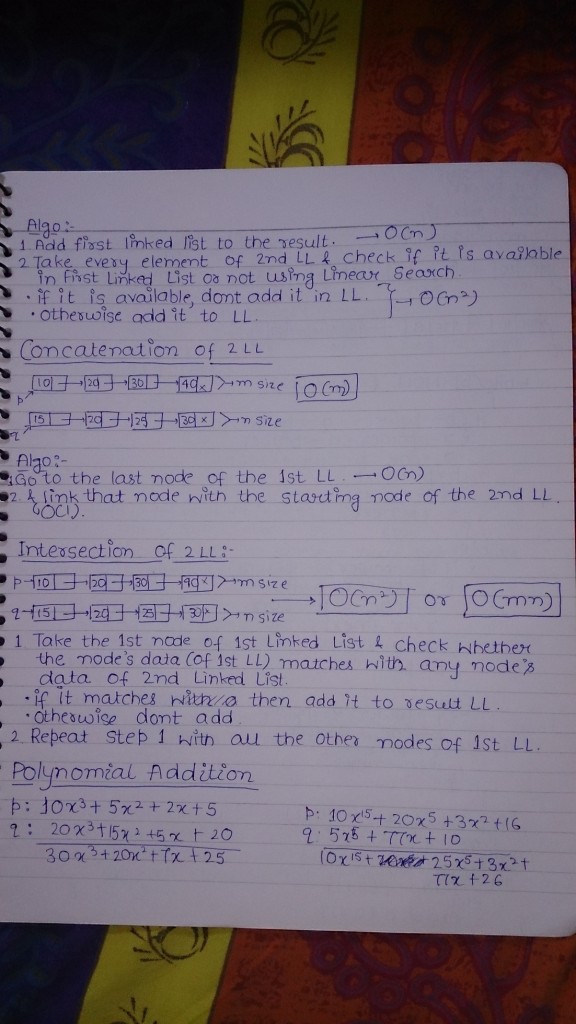 Algo:-
1. Add first linked list to the result. → O(n)
2. Take every element of 2nd LL & check if it is available
in first Linked List or not using Linear Search.
• if it is available, dont add it in LL. } → O(n²)
• otherwise add it to LL.
Concatenation of 2 LL
p 10 → 20 → 30 → 40 x } m size O(m)
q 15 → 20 → 25 → 30 x } n size
Algo:-
1. Go to the last node of the 1st LL. → O(n)
2. & link that node with the starting node of the 2nd LL.
↳ O(1).
Intersection of 2 LL:-
p → 10 → 20 → 30 → 40 x } m size
→ O(n²) or O(mn)
q → 15 → 20 → 25 → 30 x } n size
1 Take the 1st node of 1st Linked List & check whether
the node's data (of 1st LL) matches with any node's
data of 2nd Linked List.
• if it matches then add it to result LL.
• otherwise dont add.
2. Repeat Step 1 with all the other nodes of 1st LL.
Polynomial Addition
p: 10x³ + 5x² + 2x + 5
q: 20x³ + 15x² + 5x + 20
30x³ + 20x² + 7x + 25
p: 10x¹⁵ + 20x⁵ + 3x² + 16
q: 5x⁵ + 77x + 10
10x¹⁵ + 25x⁵ + 3x² +
77x + 26